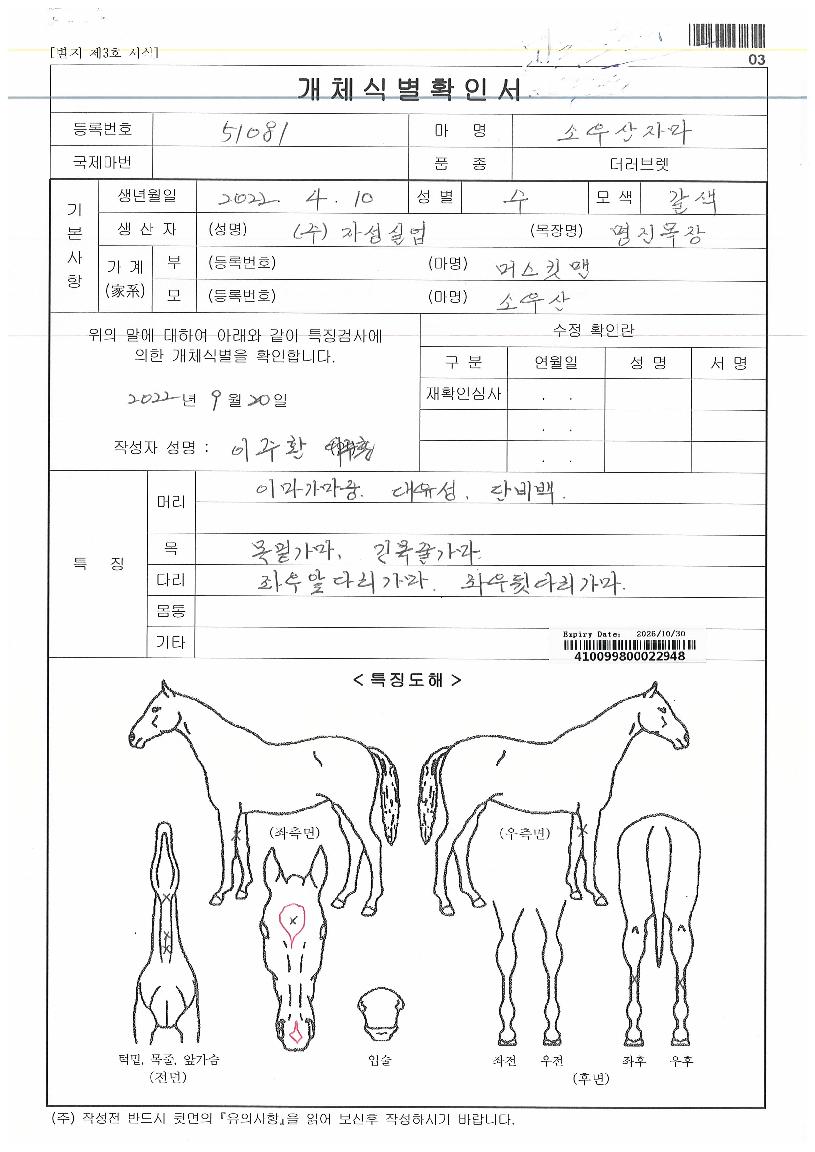 [별지 제3호 서식]
03
개체식별확인서
등록번호 51081 마 명 소우산자다
국제마번 품 종 더러브렛
기본사항
생년월일 2022. 4. 10 성별 수 모색 갈색
생 산 자 (성명) (주) 자성실업 (목장명) 명진목장
가계(家系) 부 (등록번호) (마명) 머스킷맨
모 (등록번호) (마명) 소우산
위의 말에 대하여 아래와 같이 특징검사에
의한 개체식별을 확인합니다.
2022년 9월 20일
작성자 성명 : 이주환
수정 확인란
구 분 연월일 성 명 서 명
재확인심사 . .
. .
. .
특 징
머리 이마가마중. 대유성. 단비백.
목 목밑가마, 긴목줄가마.
다리 좌우앞다리가마. 좌우뒷다리가마.
몸통
기타
Expiry Date: 2026/10/30
410099800022948
< 특징도해 >
(좌측면) (우측면)
턱밑, 목줄, 앞가슴
(전면)
입술
좌전 우전 좌후 우후
(후면)
(주) 작성전 반드시 뒷면의 『유의사항』을 읽어 보신후 작성하시기 바랍니다.